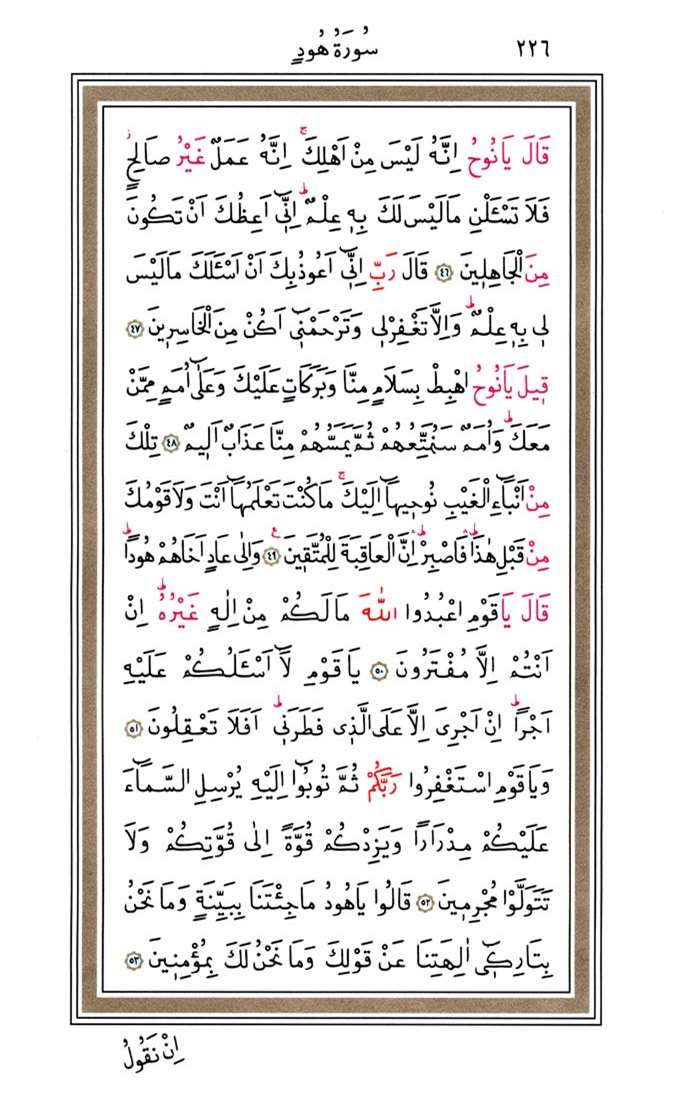 سُورَةُ هُودٍ ٢٢٦
قَالَ يَانُوحُ اِنَّهُ لَيْسَ مِنْ اَهْلِكَۚ اِنَّهُ عَمَلٌ غَيْرُ صَالِحٍۗ
فَلَا تَسْـَٔلْنِ مَا لَيْسَ لَكَ بِه۪ عِلْمٌۜ اِنّ۪ٓي اَعِظُكَ اَنْ تَكُونَ
مِنَ الْجَاهِل۪ينَ ﴿٤٦﴾ قَالَ رَبِّ اِنّ۪ٓي اَعُوذُ بِكَ اَنْ اَسْـَٔلَكَ مَا لَيْسَ
ل۪ي بِه۪ عِلْمٌۜ وَاِلَّا تَغْفِرْ ل۪ي وَتَرْحَمْن۪ٓي اَكُنْ مِنَ الْخَاسِر۪ينَ ﴿٤٧﴾
ق۪يلَ يَانُوحُ اهْبِطْ بِسَلَامٍ مِنَّا وَبَرَكَاتٍ عَلَيْكَ وَعَلٰٓى اُمَمٍ مِمَّنْ
مَعَكَۜ وَاُمَمٌ سَنُمَتِّعُهُمْ ثُمَّ يَمَسُّهُمْ مِنَّا عَذَابٌ اَل۪يمٌ ﴿٤٨﴾ تِلْكَ
مِنْ اَنْبَٓاءِ الْغَيْبِ نُوح۪يهَٓا اِلَيْكَۚ مَا كُنْتَ تَعْلَمُهَٓا اَنْتَ وَلَا قَوْمُكَ
مِنْ قَبْلِ هٰذَاۜ فَاصْبِرْۜ اِنَّ الْعَاقِبَةَ لِلْمُتَّق۪ينَ۟ ﴿٤٩﴾ وَاِلٰى عَادٍ اَخَاهُمْ هُوداًۜ
قَالَ يَا قَوْمِ اعْبُدُوا اللّٰهَ مَا لَكُمْ مِنْ اِلٰهٍ غَيْرُهُۜ اِنْ
اَنْتُمْ اِلَّا مُفْتَرُونَ ﴿٥٠﴾ يَا قَوْمِ لَٓا اَسْـَٔلُكُمْ عَلَيْهِ
اَجْراًۜ اِنْ اَجْرِيَ اِلَّا عَلَى الَّذ۪ي فَطَرَن۪يۜ اَفَلَا تَعْقِلُونَ ﴿٥١﴾
وَيَا قَوْمِ اسْتَغْفِرُوا رَبَّكُمْ ثُمَّ تُوبُٓوا اِلَيْهِ يُرْسِلِ السَّمَٓاءَ
عَلَيْكُمْ مِدْرَاراً وَيَزِدْكُمْ قُوَّةً اِلٰى قُوَّتِكُمْ وَلَا
تَتَوَلَّوْا مُجْرِم۪ينَ ﴿٥٢﴾ قَالُوا يَا هُودُ مَا جِئْتَنَا بِبَيِّنَةٍ وَمَا نَحْنُ
بِتَارِك۪ٓي اٰلِهَتِنَا عَنْ قَوْلِكَ وَمَا نَحْنُ لَكَ بِمُؤْمِن۪ينَ ﴿٥٣﴾
اِنْ نَقُولُ